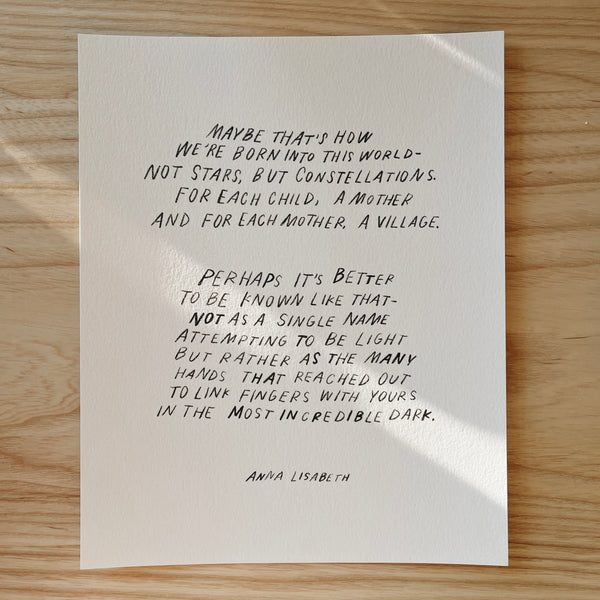 MAYBE THAT'S HOW
WE'RE BORN INTO THIS WORLD-
NOT STARS, BUT CONSTELLATIONS.
FOR EACH CHILD, A MOTHER
AND FOR EACH MOTHER, A VILLAGE.
PERHAPS IT'S BETTER
TO BE KNOWN LIKE THAT-
NOT AS A SINGLE NAME
ATTEMPTING TO BE LIGHT
BUT RATHER AS THE MANY
HANDS THAT REACHED OUT
TO LINK FINGERS WITH YOURS
IN THE MOST INCREDIBLE DARK.
ANNA LISABETH